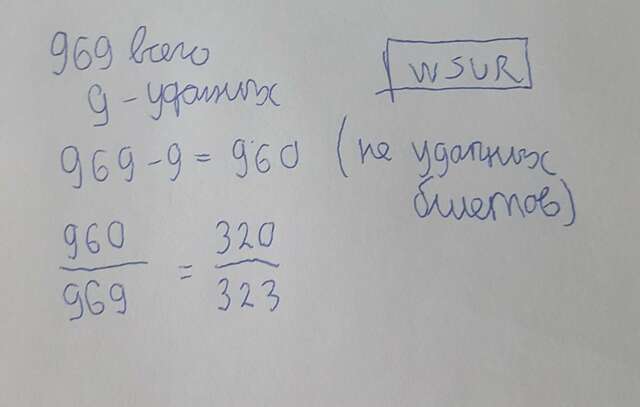 969 всего
9 - удачных
WSUR
969 - 9 = 960 (не удачных
билетов)
960/969 = 320/323